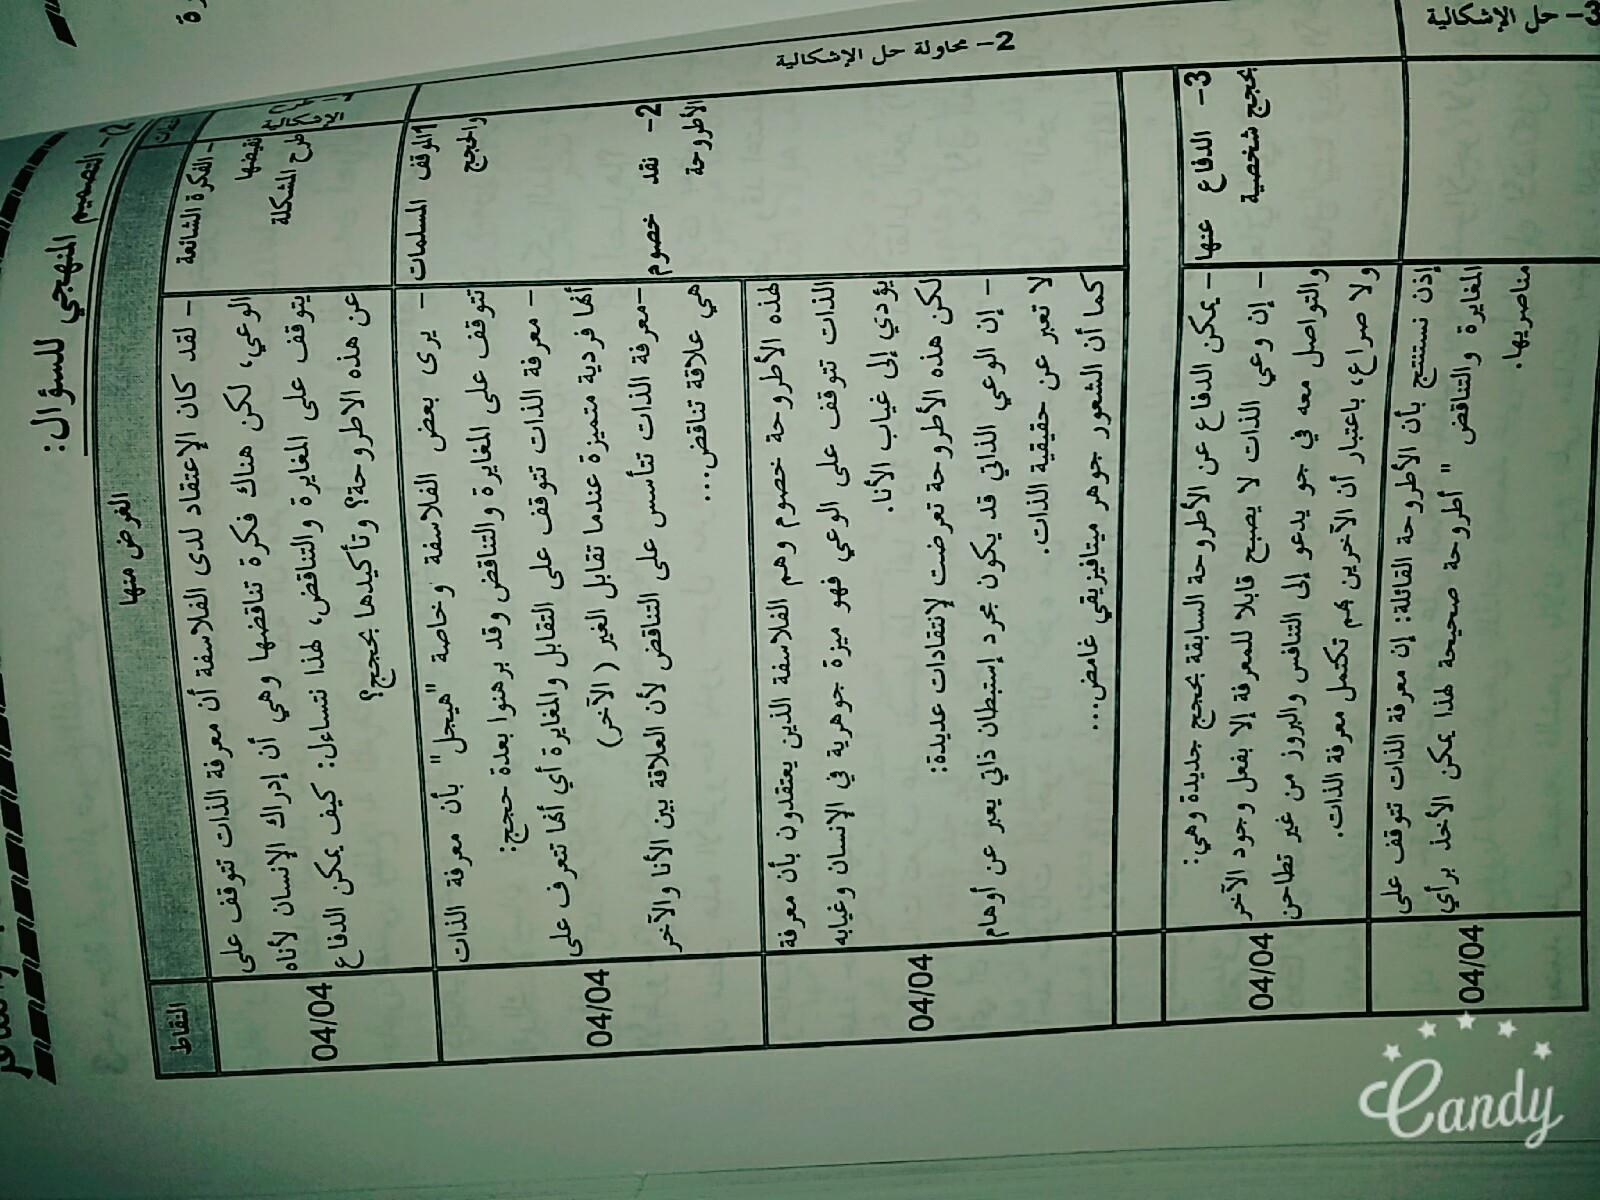 2- التصميم المنهجي للسؤال:
الغرض منها
النقاط
الإشكالية
- الفكرة الشائعة
نقيضها
طرح المشكلة
- لقد كان الإعتقاد لدى الفلاسفة أن معرفة الذات تتوقف على
الوعي، لكن هناك فكرة تناقضها وهي أن إدراك الإنسان لأناه
يتوقف على المغايرة والتناقض، لهذا نتساءل: كيف يمكن الدفاع
عن هذه الاطروحة؟ وتأكيدها بحجج؟
04/04
2- محاولة حل الإشكالية
1الموقف المسلمات
والحجج
- يرى بعض الفلاسفة وخاصة "هيجل" بأن معرفة الذات
تتوقف على المغايرة والتناقض وقد برهنوا بعدة حجج:
- معرفة الذات تتوقف على التقابل والمغايرة أي أنها تتعرف على
أنها فردية متميزة عندما تقابل الغير ( الآخر)
-معرفة الذات تتأسس على التناقض لأن العلاقة بين الأنا والآخر
هي علاقة تناقض...
04/04
2- نقد خصوم
الأطروحة
لهذه الأطروحة خصوم وهم الفلاسفة الذين يعتقدون بأن معرفة
الذات تتوقف على الوعي فهو ميزة جوهرية في الإنسان وغيابه
يؤدي إلى غياب الأنا.
لكن هذه الأطروحة تعرضت لإنتقادات عديدة:
- إن الوعي الذاتي قد يكون مجرد إستبطان ذاتي يعبر عن أوهام
لا تعبر عن حقيقية الذات.
كما أن الشعور جوهر ميتافيزيقي غامض...
04/04
3- الدفاع عنها
بحجج شخصية
- يمكن الدفاع عن الأطروحة السابقة بحجج جديدة وهي:
- إن وعي الذات لا يصبح قابلا للمعرفة إلا بفعل وجود الآخر
والتواصل معه في جو يدعو إلى التنافس والبروز من غير تطاحن
ولا صراع، باعتبار أن الآخرين بهم تكتمل معرفة الذات.
04/04
3- حل الإشكالية
إذن نستنتج بأن الأطروحة القائلة: إن معرفة الذات تتوقف على
المغايرة والتناقض " أطروحة صحيحة لهذا يمكن الأخذ برأي
مناصريها.
04/04
Candy